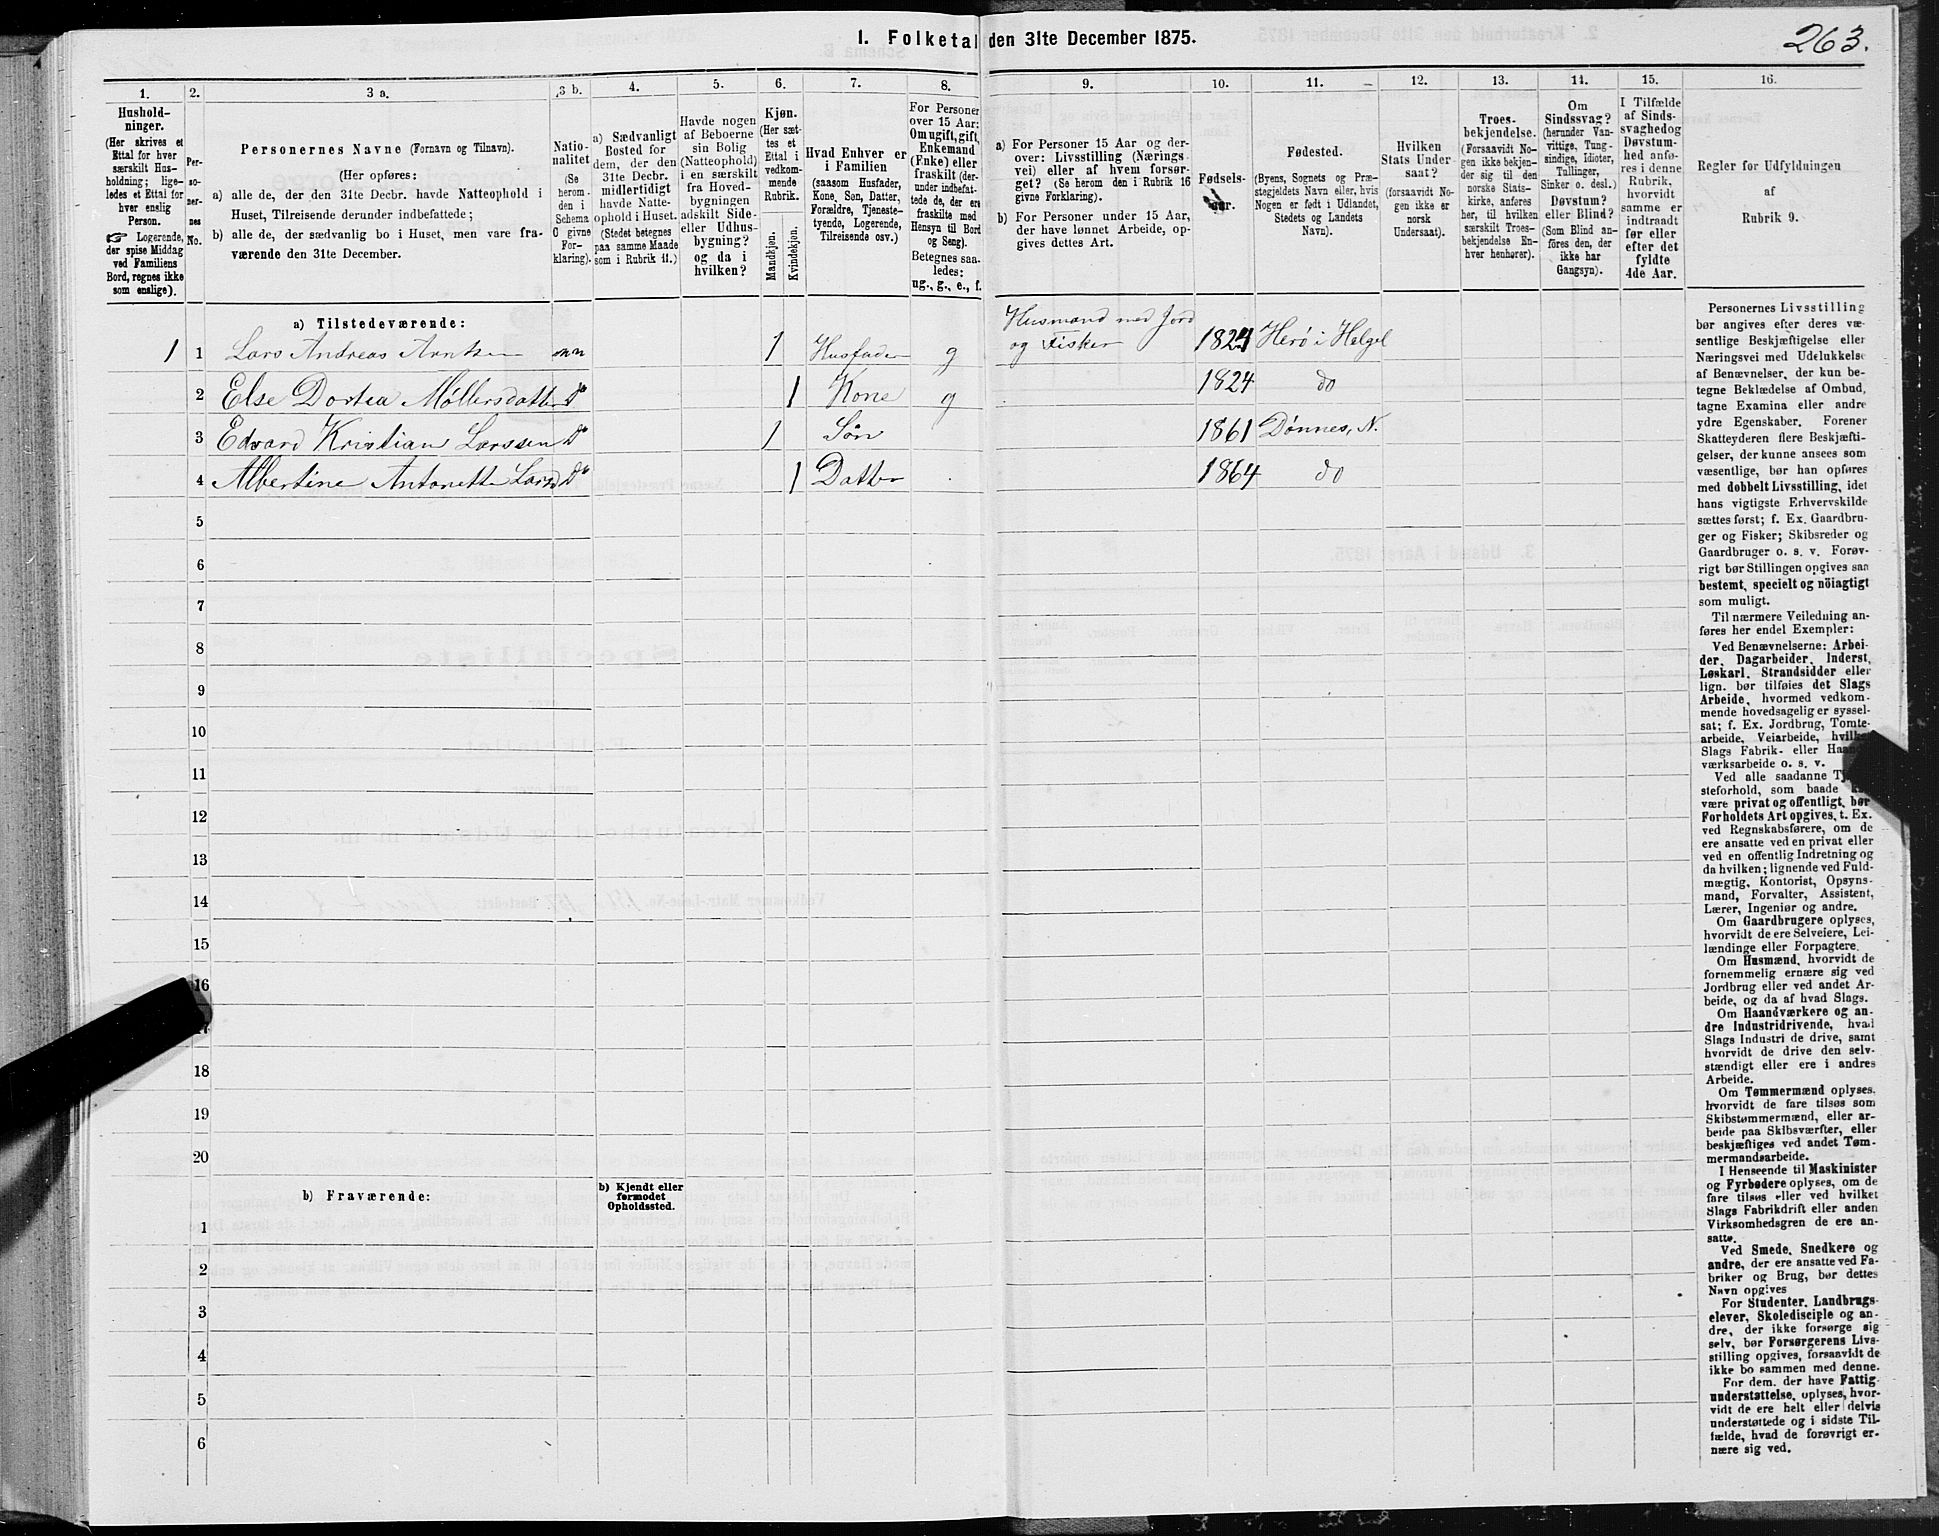 1. Folketal den 31te December 1875.
263.
1.
Hushold-
ninger.
(Her skrives et
Ettal for hver
særskilt Hus-
holdning; lige-
ledes et Ettal for
hver enslig
Person.
☞ Logerende,
der spise Middag
ved Familiens
Bord, regnes ikke
som enslige).
2.
Per-
so-
ner-
nes
No.
3 a.
Personernes Navne (Fornavn og Tilnavn).
(Her opføres:
a) alle de, der den 31te Decbr. havde Natteophold i
Huset, Tilreisende derunder indbefattede;
b) alle de, der sædvanlig bo i Huset, men vare fra-
værende den 31te December.
3 b.
Natio-
nalitet
(Se
herom
den i
Schema
C givne
For-
klaring).
4.
a) Sædvanligt
Bosted for
dem, der den
31te Decbr.
midlertidigt
havde Natte-
ophold i Huset.
(Stedet betegnes
paa samme Maade
som i Rubrik 11.)
5.
Havde nogen
af Beboerne
sin Bolig
(Natteophold)
i en særskilt
fra Hoved-
bygningen
adskilt Side-
eller Udhus-
bygning?
og da i
hvilken?
6.
Kjøn.
(Her sæt-
tes et
Ettal i
vedkom-
mende
Rubrik.
Mandkjøn.
Kvindekjøn.
7.
Hvad Enhver er
i Familien
(saasom Husfader,
Kone, Søn, Datter,
Forældre, Tjeneste-
tyende, Logerende,
Tilreisende osv.)
8.
For Personer
over 15 Aar:
Om ugift, gift,
Enkemand
(Enke) eller
fraskilt (der-
under indbefat-
tede de, der ere
fraskilte med
Hensyn til Bord
og Seng).
Betegnes saa-
ledes:
ug., g., e., f.
9.
a) For Personer 15 Aar og der-
over: Livsstilling (Nærings-
vei) eller af hvem forsør-
get? (Se herom den i Rubrik 16
givne Forklaring).
b) For Personer under 15 Aar,
der have lønnet Arbeide, op-
gives dettes Art.
10.
Fødsels-
aar.
11.
Fødested.
(Byens, Sognets og Præ-
stegjeldets Navn eller, hvis
Nogen er født i Udlandet,
Stedets og Landets
Navn).
12.
Hvilken
Stats Under-
saat?
(forsaavidt No-
gen ikke er
norsk
Undersaat).
13.
Troes-
bekjendelse.
(Forsaavidt No-
gen ikke bekjen-
der sig til den
norske Stats-
kirke, anføres
her, til hvilken
særskilt Troes-
bekjendelse En-
hver henhører).
14.
Om
Sindssvag?
(herunder Van-
vittige, Tung-
sindige, Idioter,
Tullinger,
Sinker o. desl.)
Døvstum?
eller Blind?
(Som Blind an-
føres den, der
ikke har
Gangsyn).
15.
I Tilfælde
af Sinds-
svaghed og
Døvstum-
hed anfø-
res i denne
Rubrik,
hvorvidt
samme er
indtraadt
før eller
efter det
fyldte
4de Aar.
16.
Regler for Udfyldningen
af
Rubrik 9.
a) Tilstedeværende:
1 1 Lars Andreas Arntsen nn 1 Husfader g Husmand med Jord og Fisker 1824 Herø i Helgel
2 Else Dortea Møllersdatter do 1 Kone g 1824 do
3 Edvard Kristian Larssen do 1 Søn 1861 Dønnes, N.
4 Albertine Antonette Larsd do 1 Datter 1864 do
5
6
7
8
9
10
11
12
13
14
15
16
17
18
19
20
b) Fraværende:
b) Kjendt eller
formodet
Opholdssted.
1
2
3
4
5
6
Personernes Livsstilling
bør angives efter deres væ-
sentlige Beskjæftigelse eller
Næringsvei med Udelukkelse
af Benævnelser, der kun be-
tegne Beklædelse af Ombud,
tagne Examina eller andre
ydre Egenskaber. Forener
Skatteyderen flere Beskjæfti-
gelser, der kunne ansees som
væsentlige, bør han opføres
med dobbelt Livsstilling, idet
hans vigtigste Erhvervskilde
sættes først; f. Ex. Gaardbru-
ger og Fisker; Skibsreder og
Gaardbruger o. s. v. Forøv-
rigt bør Stillingen opgives saa
bestemt, specielt og nöiagtigt
som muligt.
Til nærmere Veiledning an-
føres her endel Exempler:
Ved Benævnelserne: Arbei-
der, Dagarbeider, Inderst,
Løskarl, Strandsidder eller
lign. bør tilføies det Slags
Arbeide, hvormed vedkom-
mende hovedsagelig er syssel-
sat; f. Ex. Jordbrug, Tomte-
arbeide, Veiarbeide, hvilket
Slags Fabrik- eller Haand-
værksarbeide o. s. v.
Ved alle saadanne Tje-
steforhold, som baade kan
være privat og offentligt, bør
Forholdets Art opgives, t. Ex.
ved Regnskabsførere, om de
ere ansatte ved en privat eller
ved en offentlig Indretning og
da hvilken; lignende ved Fuld-
mægtig, Kontorist, Opsyns-
mand, Forvalter, Assistent,
Lærer, Ingeniør og andre.
Om Gaardbrugere oplyses,
hvorvidt de ere Selveiere, Lei-
lændinge eller Forpagtere.
Om Husmænd, hvorvidt de
fornemmelig ernære sig ved
Jordbrug eller ved andet Ar-
beide, og da af hvad Slags.
Om Haandværkere og an-
dre Industridrivende, hvad
Slags Industri de drive, samt
hvorvidt de drive den selv-
stændigt eller ere i andres
Arbeide.
Om Tømmermænd oplyses,
hvorvidt de fare tilsøs som
Skibstømmermænd, eller ar-
beide paa Skibsværfter, eller
beskjæftiges ved andet Tøm-
mermandsarbeide.
I Henseende til Maskinister
og Fyrbødere oplyses, om de
fare tilsøs eller ved hvilket
Slags Fabrikdrift eller anden
Virksomhedsgren de ere an-
satte.
Ved Smede, Snedkere og
andre, der ere ansatte ved Fa-
briker og Brug, bør dettes
Navn opgives
For Studenter, Landbrugs-
elever, Skoledisciple og an-
dre, der ikke forsørge sig
selv, bør Forsørgerens Livs-
stilling opgives, forsaavidt de
ikke bo sammen med denne.
For dem, der have Fattig-
understøttelse, oplyses, hvor-
vidt de ere helt eller delvis
understøttede og i sidste Til-
fælde, hvad de forøvrigt er-
nære sig ved.